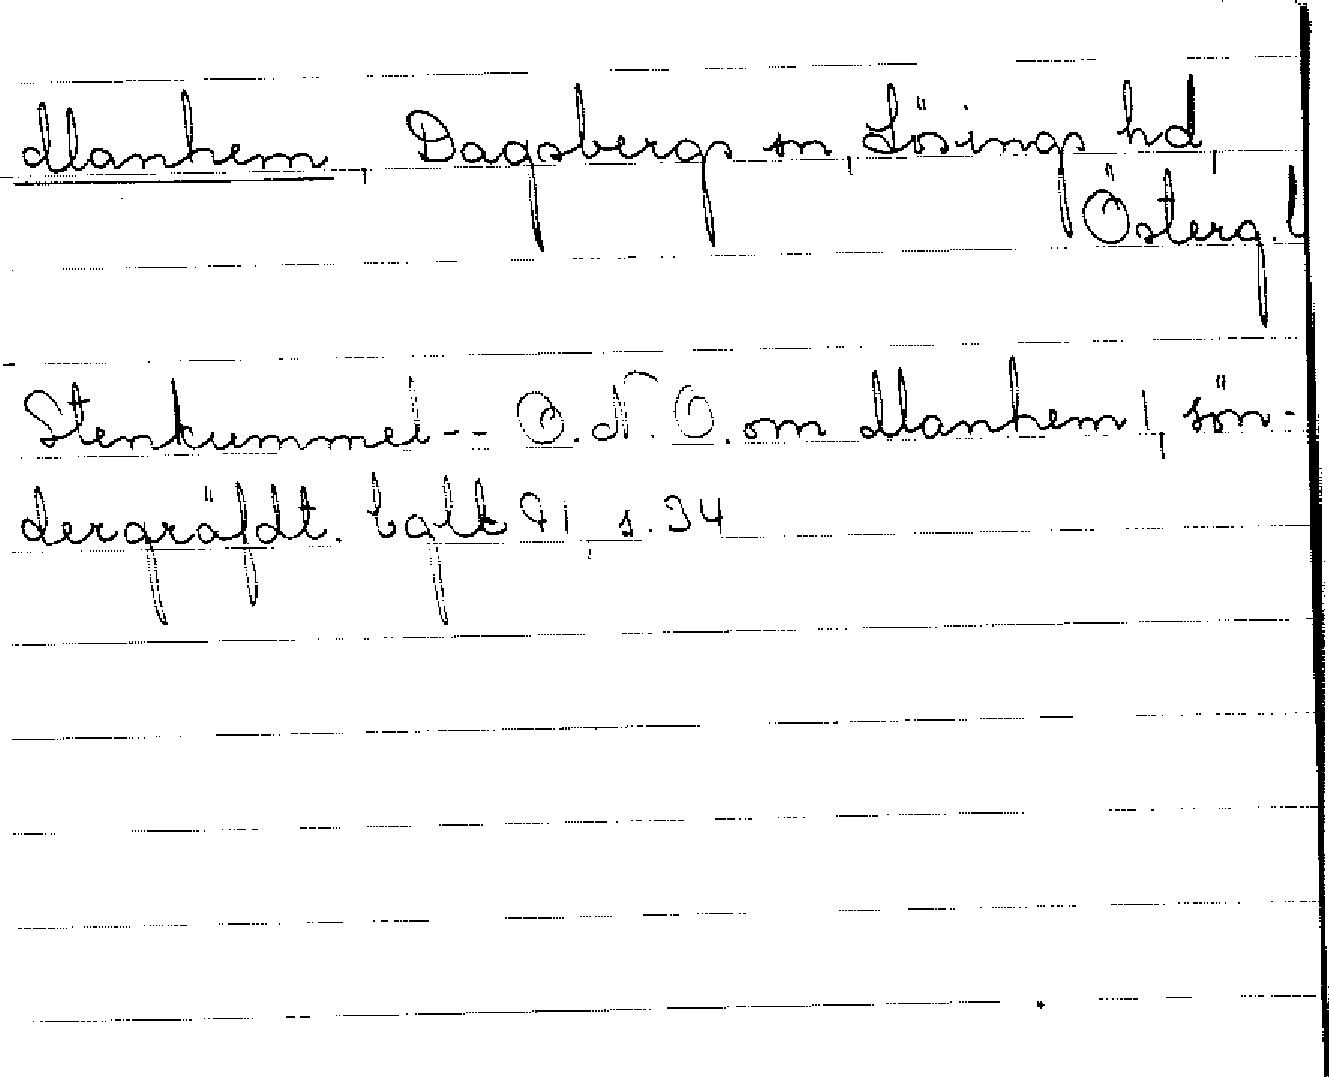 Manhem, Dagsbergs sn, Lösings hd,
Österg. l
Stenkummel -- O. N. O. om Manhem!, sön-
dergräfdt. balk 91, s. 34